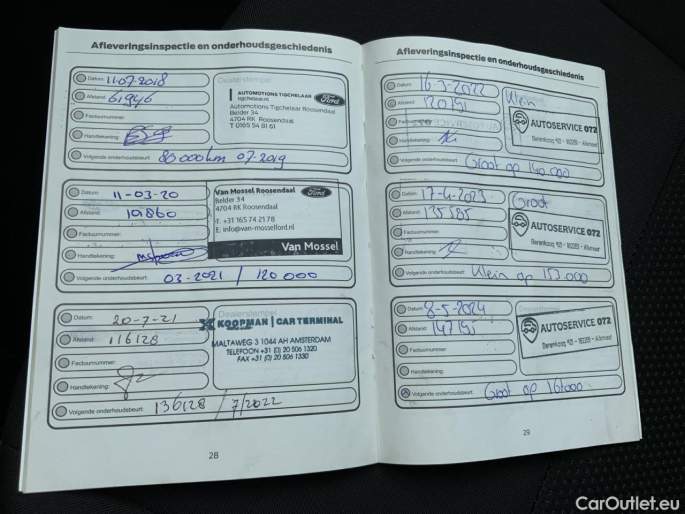 Afleveringsinspectie en onderhoudsgeschiedenis
Datum: 11-07-2018
Afstand: 61946
Factuurnummer:
Handtekening:
Volgende onderhoudsbeurt: 85000km 07-2019
Dealerstempel
AUTOMOTIONS TIGCHELAAR
tigchelaar.nl
Ford
Automotions Tigchelaar Roosendaal
Belder 34
4704 RK Roosendaal
T 0165 54 81 61
Datum: 11-03-20
Afstand: 101860
Factuurnummer:
Handtekening:
Volgende onderhoudsbeurt: 03-2021 / 120000
Van Mossel Roosendaal
Ford
Belder 34
4704 RK Roosendaal
T: +31 165 74 21 78
E: info@van-mosselford.nl
Van Mossel
Datum: 20-7-21
Afstand: 116128
Factuurnummer:
Handtekening:
Volgende onderhoudsbeurt: 136128 / 7/2022
Dealerstempel
KOOPMAN | CAR TERMINAL
MALTAWEG 3 1044 AH AMSTERDAM
TELEFOON +31 (0) 20 506 1320
FAX +31 (0) 20 506 1330
28
Afleveringsinspectie en onderhoudsgeschiedenis
Datum: 16-3-2022
Afstand: 120751
Factuurnummer:
Handtekening:
Volgende onderhoudsbeurt: Groot op 140.000
Klein
AUTOSERVICE 072
Datum: 17-4-2023
Afstand: 135585
Factuurnummer:
Handtekening:
Volgende onderhoudsbeurt: Klein op 153.000
Groot
AUTOSERVICE 072
Datum: 8-5-2024
Afstand: 147151
Factuurnummer:
Handtekening:
Volgende onderhoudsbeurt: Groot op 161000
AUTOSERVICE 072
29
CarOutlet.eu